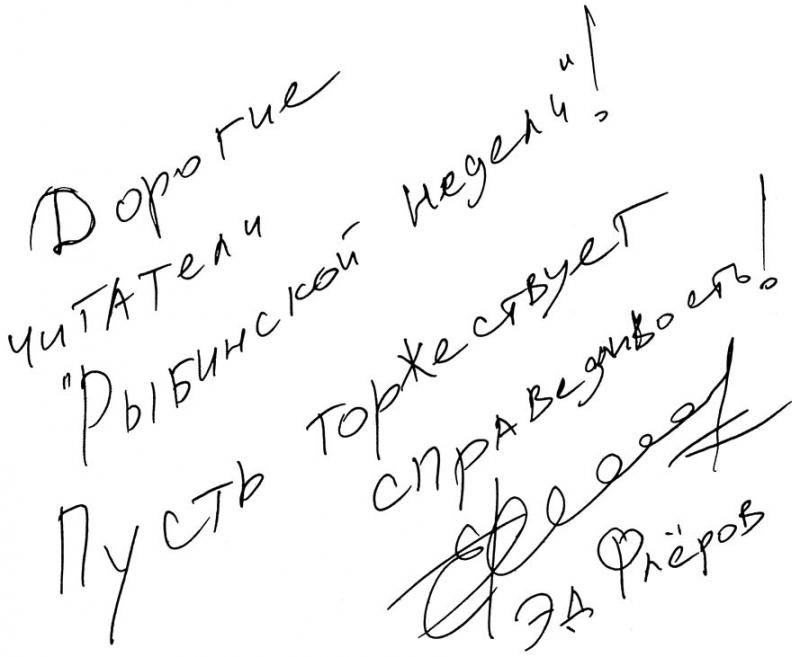 Дорогие
читатели
"Рыбинской недели"!
Пусть торжествует
справедливость!
Эд Флёров